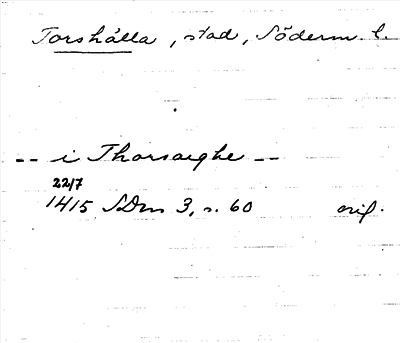 Torshälla, stad, Söderm. l.
-- i Thorsarghe --
22/7
1415 SDns 3, s. 60 orig.